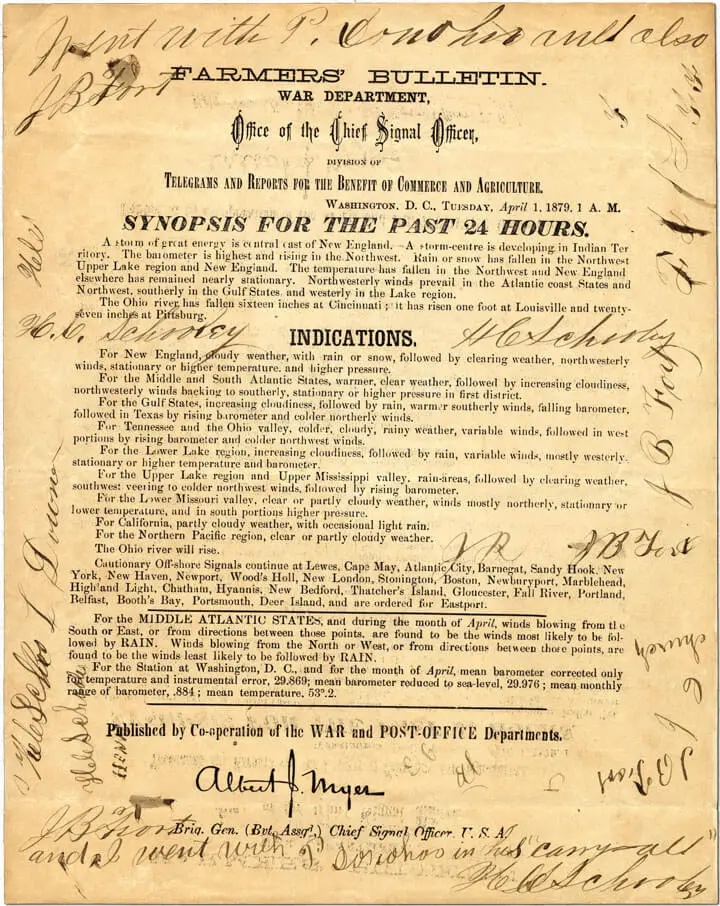 Went with P. Donoho and also
J B Fort
FARMERS' BULLETIN.
WAR DEPARTMENT,
Office of the Chief Signal Officer,
DIVISION OF
TELEGRAMS AND REPORTS FOR THE BENEFIT OF COMMERCE AND AGRICULTURE.
WASHINGTON, D. C., TUESDAY, April 1, 1879, 1 A. M.
SYNOPSIS FOR THE PAST 24 HOURS.
A storm of great energy is central east of New England. A storm-centre is developing in Indian Ter
ritory. The barometer is highest and rising in the Northwest. Rain or snow has fallen in the Northwest
Upper Lake region and New England. The temperature has fallen in the Northwest and New England
elsewhere has remained nearly stationary. Northwesterly winds prevail in the Atlantic coast States and
Northwest, southerly in the Gulf States and westerly in the Lake region.
The Ohio river has fallen sixteen inches at Cincinnati; it has risen one foot at Louisville and twenty-
seven inches at Pittsburg.
H. C. Schooley
H C Schooley
INDICATIONS.
For New England, cloudy weather, with rain or snow, followed by clearing weather, northwesterly
winds, stationary or higher temperature. and higher pressure.
For the Middle and South Atlantic States, warmer, clear weather, followed by increasing cloudiness,
northwesterly winds backing to southerly, stationary or higher pressure in first district.
For the Gulf States, increasing cloudiness, followed by rain, warmer southerly winds, falling barometer,
followed in Texas by rising barometer and colder northerly winds.
For Tennessee and the Ohio valley, colder, cloudy, rainy weather, variable winds, followed in west
portions by rising barometer and colder northwest winds.
For the Lower Lake region, increasing cloudiness, followed by rain, variable winds, mostly westerly,
stationary or higher temperature and barometer.
For the Upper Lake region and Upper Mississippi valley, rain-areas, followed by clearing weather,
southwest veering to colder northwest winds, followed by rising barometer.
For the Lower Missouri valley, clear or partly cloudy weather, winds mostly northerly, stationary or
lower temperature, and in south portions higher pressure.
For California, partly cloudy weather, with occasional light rain.
For the Northern Pacific region, clear or partly cloudy weather.
The Ohio river will rise.
J B
J B Fort
Cautionary Off-shore Signals continue at Lewes, Cape May, Atlantic City, Barnegat, Sandy Hook, New
York, New Haven, Newport, Wood's Holl, New London, Stonington, Boston, Newburyport, Marblehead,
Highland Light, Chatham, Hyannis, New Bedford, Thatcher's Island, Gloucester, Fall River, Portland,
Belfast, Booth's Bay, Portsmouth, Deer Island, and are ordered for Eastport.
For the MIDDLE ATLANTIC STATES, and during the month of April, winds blowing from the
South or East, or from directions between those points, are found to be the winds most likely to be fol-
lowed by RAIN. Winds blowing from the North or West, or from directions between those points, are
found to be the winds least likely to be followed by RAIN.
For the Station at Washington, D. C., and for the month of April, mean barometer corrected only
for temperature and instrumental error, 29.869; mean barometer reduced to sea-level, 29.976; mean monthly
range of barometer, .884; mean temperature, 53°.2.
Published by Co-operation of the WAR and POST-OFFICE Departments.
Albert J. Myer
Brig. Gen. (Bvt. Assg'.) Chief Signal Officer, U. S. A.
J B Fort
and I went with P Donohoo in his "carry-all"
H C Schooley
J B Fort
church
J B Fort